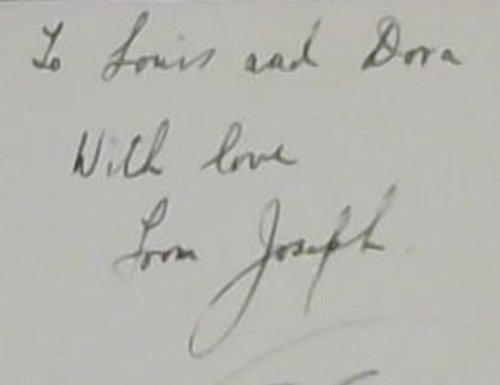 To Louis and Dora
With love
from Joseph